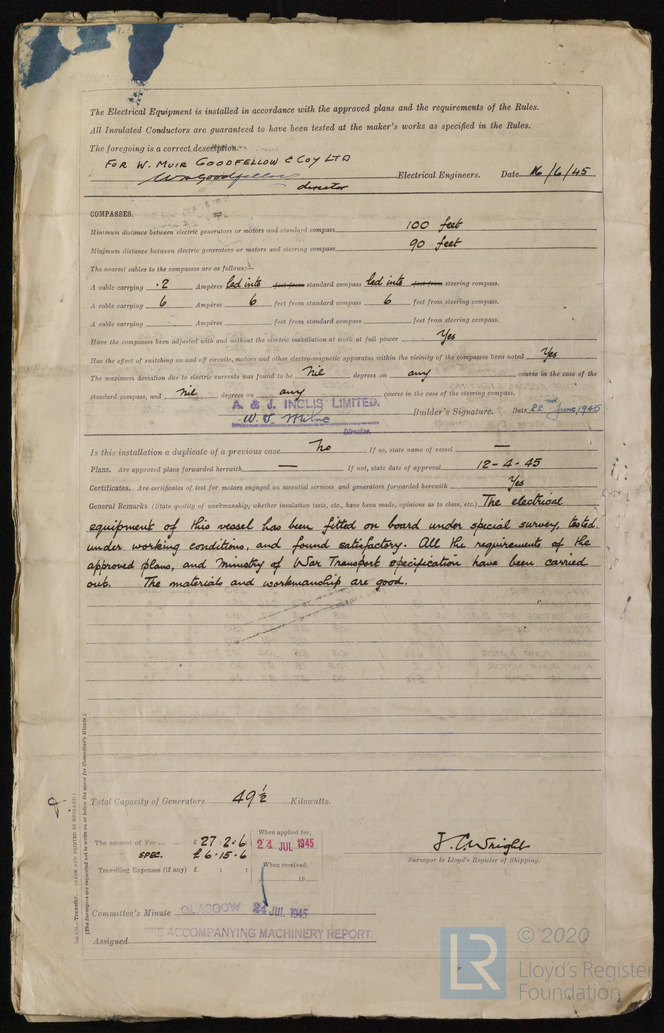 The Electrical Equipment is installed in accordance with the approved plans and the requirements of the Rules.
All Insulated Conductors are guaranteed to have been tested at the maker's works as specified in the Rules.
The foregoing is a correct description.
FOR W. MUIR GOODFELLOW & COY LTD
WMGoodfellow Electrical Engineers. Date 16/6/45
director
COMPASSES.
Minimum distance between electric generators or motors and standard compass 100 feet
Minimum distance between electric generators or motors and steering compass 90 feet
The nearest cables to the compasses are as follows:—
A cable carrying .2 Ampères led into feet from standard compass led into feet from steering compass.
A cable carrying 6 Ampères 6 feet from standard compass 6 feet from steering compass.
A cable carrying Ampères feet from standard compass feet from steering compass.
Have the compasses been adjusted with and without the electric installation at work at full power Yes
Has the effect of switching on and off circuits, motors and other electro-magnetic apparatus within the vicinity of the compasses been noted Yes
The maximum deviation due to electric currents was found to be Nil degrees on any course in the case of the
standard compass, and nil degrees on any course in the case of the steering compass.
A. & J. INGLIS LIMITED.
W. J. Milne Builder's Signature. Date 22nd June, 1945
Director.
Is this installation a duplicate of a previous case No If so, state name of vessel —
Plans. Are approved plans forwarded herewith — If not, state date of approval 12-4-45
Certificates. Are certificates of test for motors engaged on essential services and generators forwarded herewith Yes
General Remarks (State quality of workmanship, whether insulation tests, etc., have been made, opinions as to class, etc.) The electrical
equipment of this vessel has been fitted on board under special survey, tested
under working conditions, and found satisfactory. All the requirements of the
approved plans, and Ministry of War Transport specification have been carried
out. The materials and workmanship are good.
Total Capacity of Generators 49½ Kilowatts.
The amount of Fee ... ... £ 27 : 2 . 6 When applied for, 24 JUL 1945
SPEC. £ 6 . 15 . 6
Travelling Expenses (if any) £ : : When received, 19
J. C. Wright
Surveyor to Lloyd's Register of Shipping.
Committee's Minute GLASGOW 24 JUL 1945
Assigned ACCOMPANYING MACHINERY REPORT.
Transfer. (MADE AND PRINTED IN ENGLAND.)
(The Surveyors are requested not to write on or below the space for Committee's Minute.)
LR © 2020
Lloyd's Register
Foundation